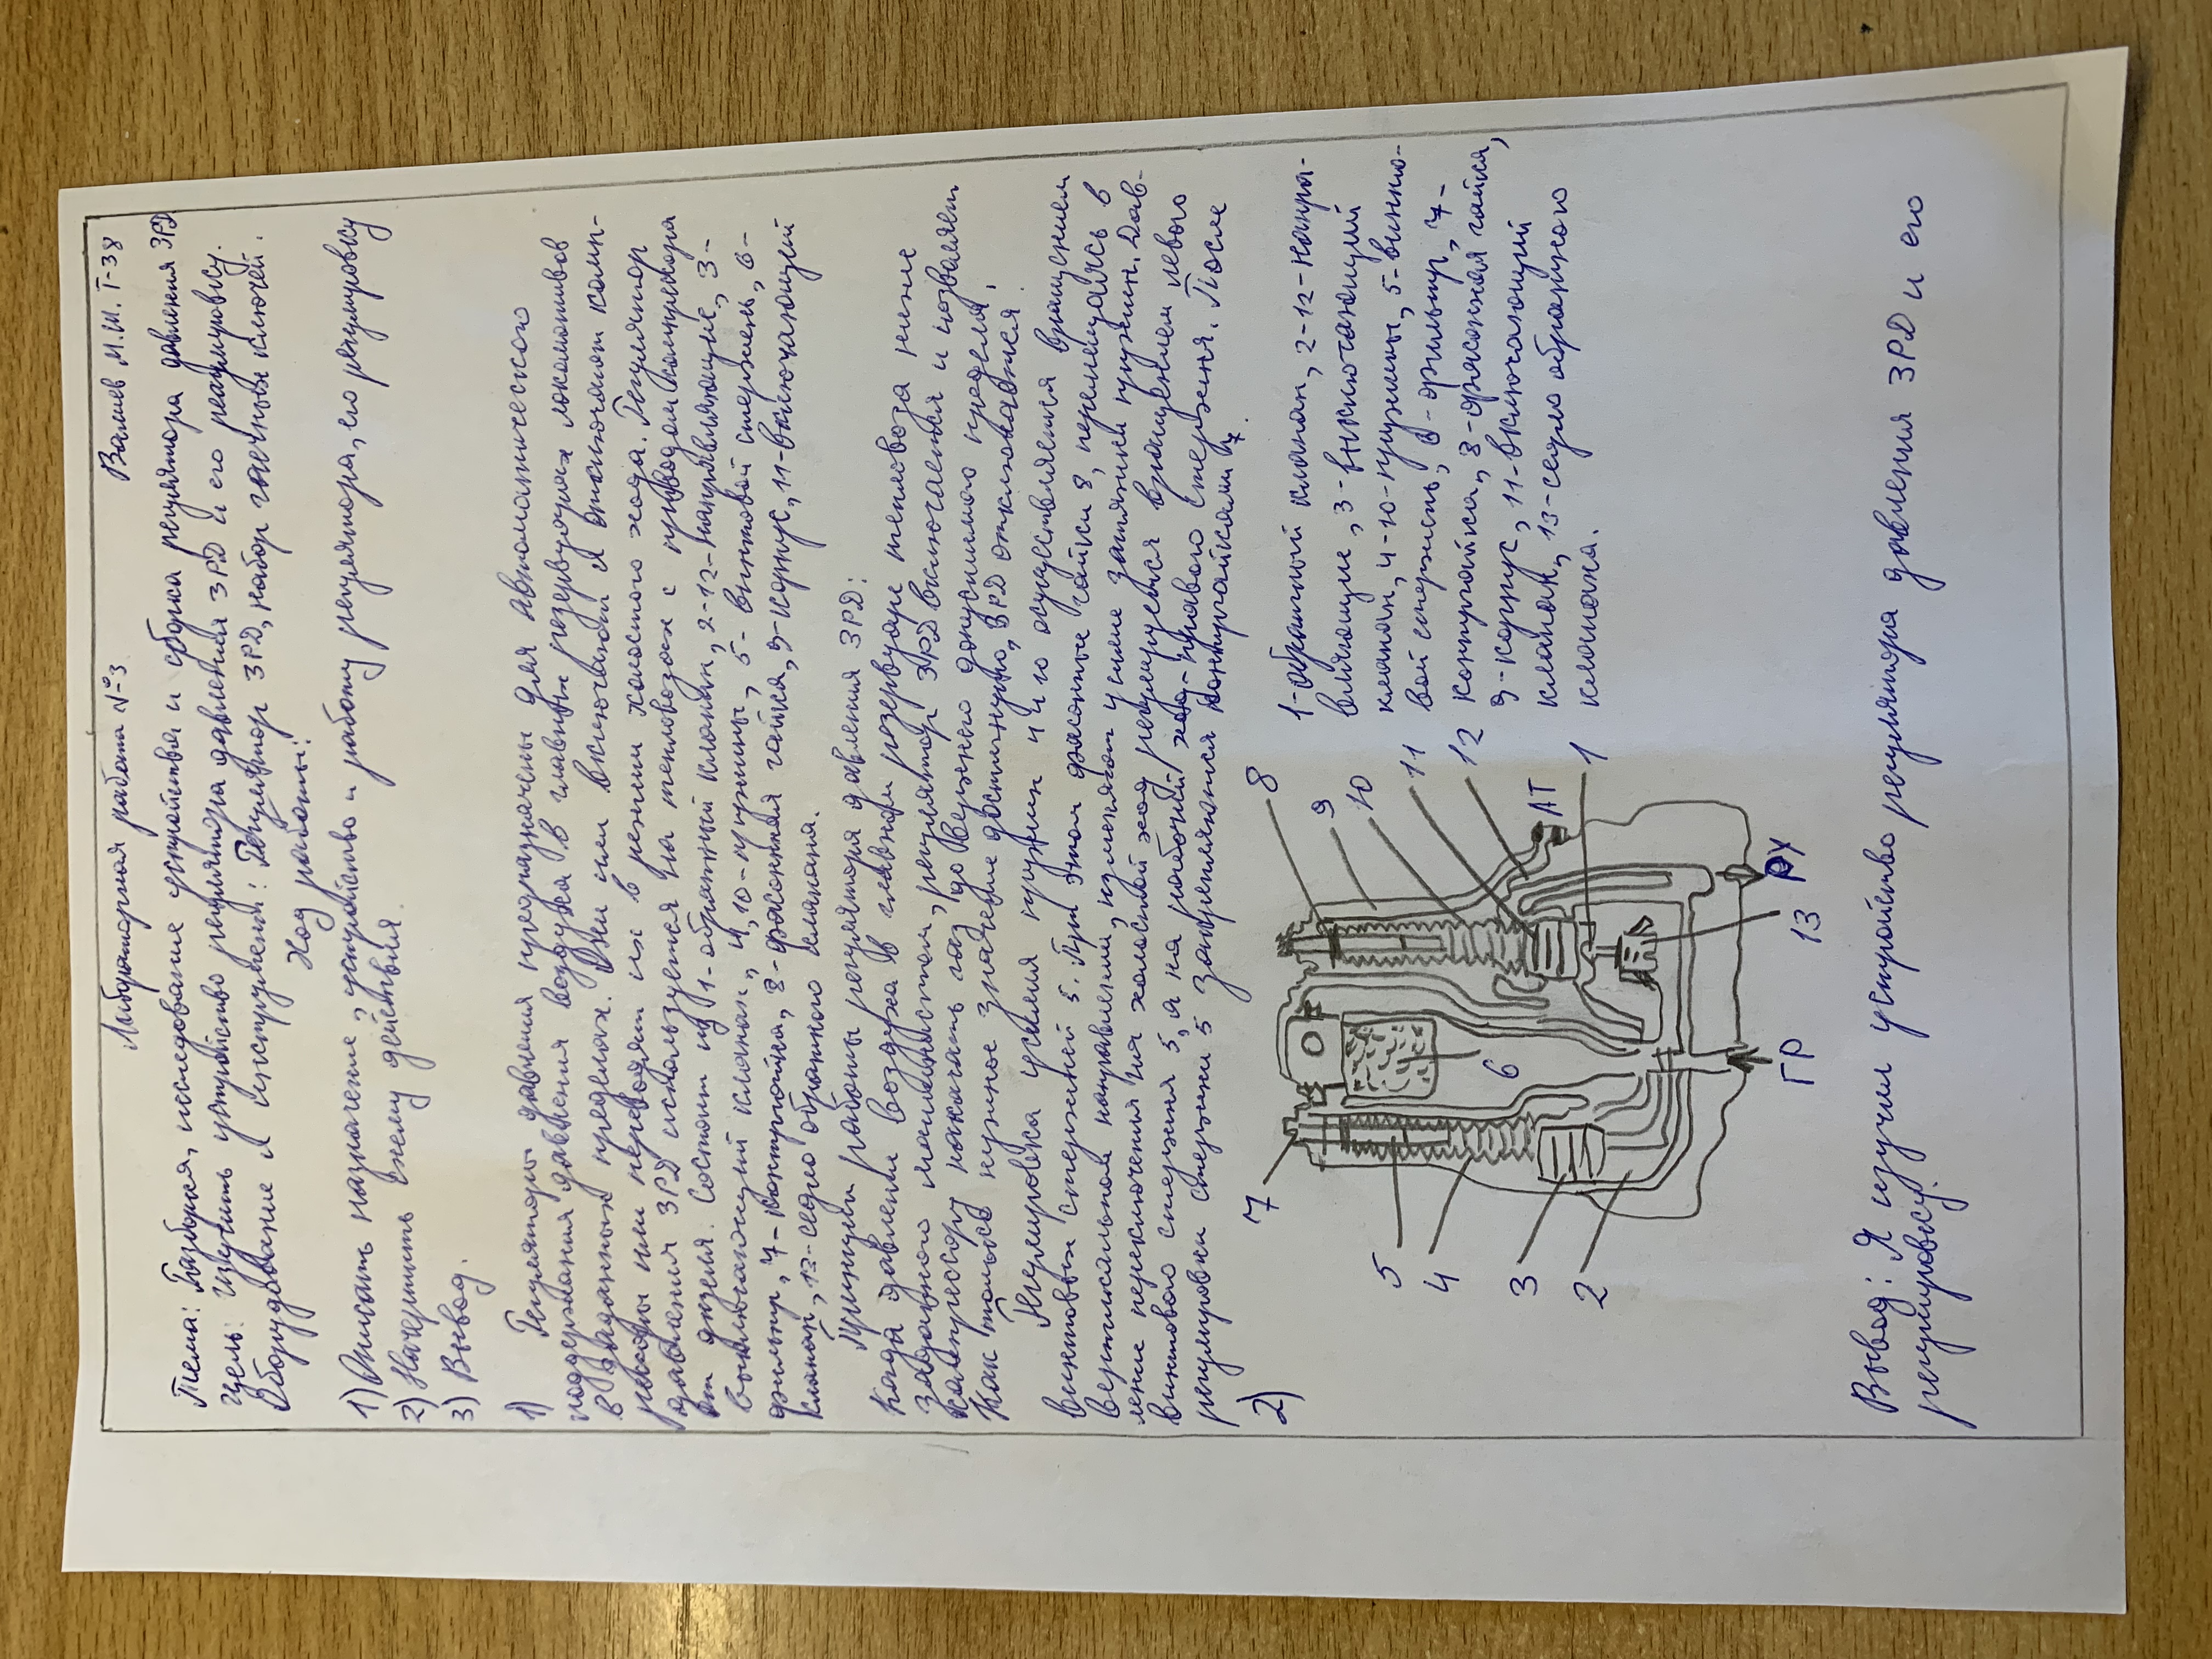 Лабораторная работа №3 Валиев М.Ш. Т-38
Тема: Разборка, исследование устройства и сборка регулятора давления 3РД
Цель: изучить устройство регулятора давления 3РД и его регулировку.
Оборудование и инструмент: Регулятор 3РД, набор гаечных ключей.
Ход работы:
1) Описать назначение, устройство и работу регулятора, его регулировку
2) Начертить схему действия.
3) Вывод.
1) Регуляторы давления предназначены для автоматического
поддержания давления воздуха в главных резервуарах локомотивов
в заданных пределах. Они или включают и отключают комп-
рессоры или переводят их в режим холостого хода. Регулятор
давления 3РД используется на тепловозах с приводом компрессора
от дизеля. Состоит из 1-обратный клапан, 2-12-направляющие, 3-
выключающий клапан, 4,10-пружины, 5-винтовой стержень, 6-
фильтр, 7-контргайка, 8-фасонная гайка, 9-корпус, 11-включающий
клапан, 13-седло обратного клапана.
Принцип работы регулятора давления 3РД:
Когда давление воздуха в главном резервуаре тепловоза ниже
заданного минимального, регулятор 3РД включается и позволяет
компрессору накачать газ до верхнего допустимого предела,
Как только нужное значение достигнуто, 3РД отключается.
Регулировка усилия пружин 4 и 10 осуществляется вращением
винтовых стержней 5. При этом фасонные гайки 8, перемещаясь в
вертикальном направлении, изменяют усилие затяжки пружин. Дав-
ление переключения на холостой ход регулируется вращением левого
винтового стержня 5, а на рабочий ход - правого стержня. После
регулировки стержни 5 закрепляются контргайками 7.
2)
7
5
4
3
2
6
ГР
8
9
10
11
12
АТ
1
РУ
13
1-обратный клапан, 2-12-напра-
вляющие, 3-выключающий
клапан, 4-10-пружины, 5-винто-
вой стержень, 6-фильтр, 7-
контргайка, 8-фасонная гайка,
9-корпус, 11-включающий
клапан, 13-седло обратного
клапана.
Вывод: Я изучил устройство регулятора давления 3РД и его
регулировку.